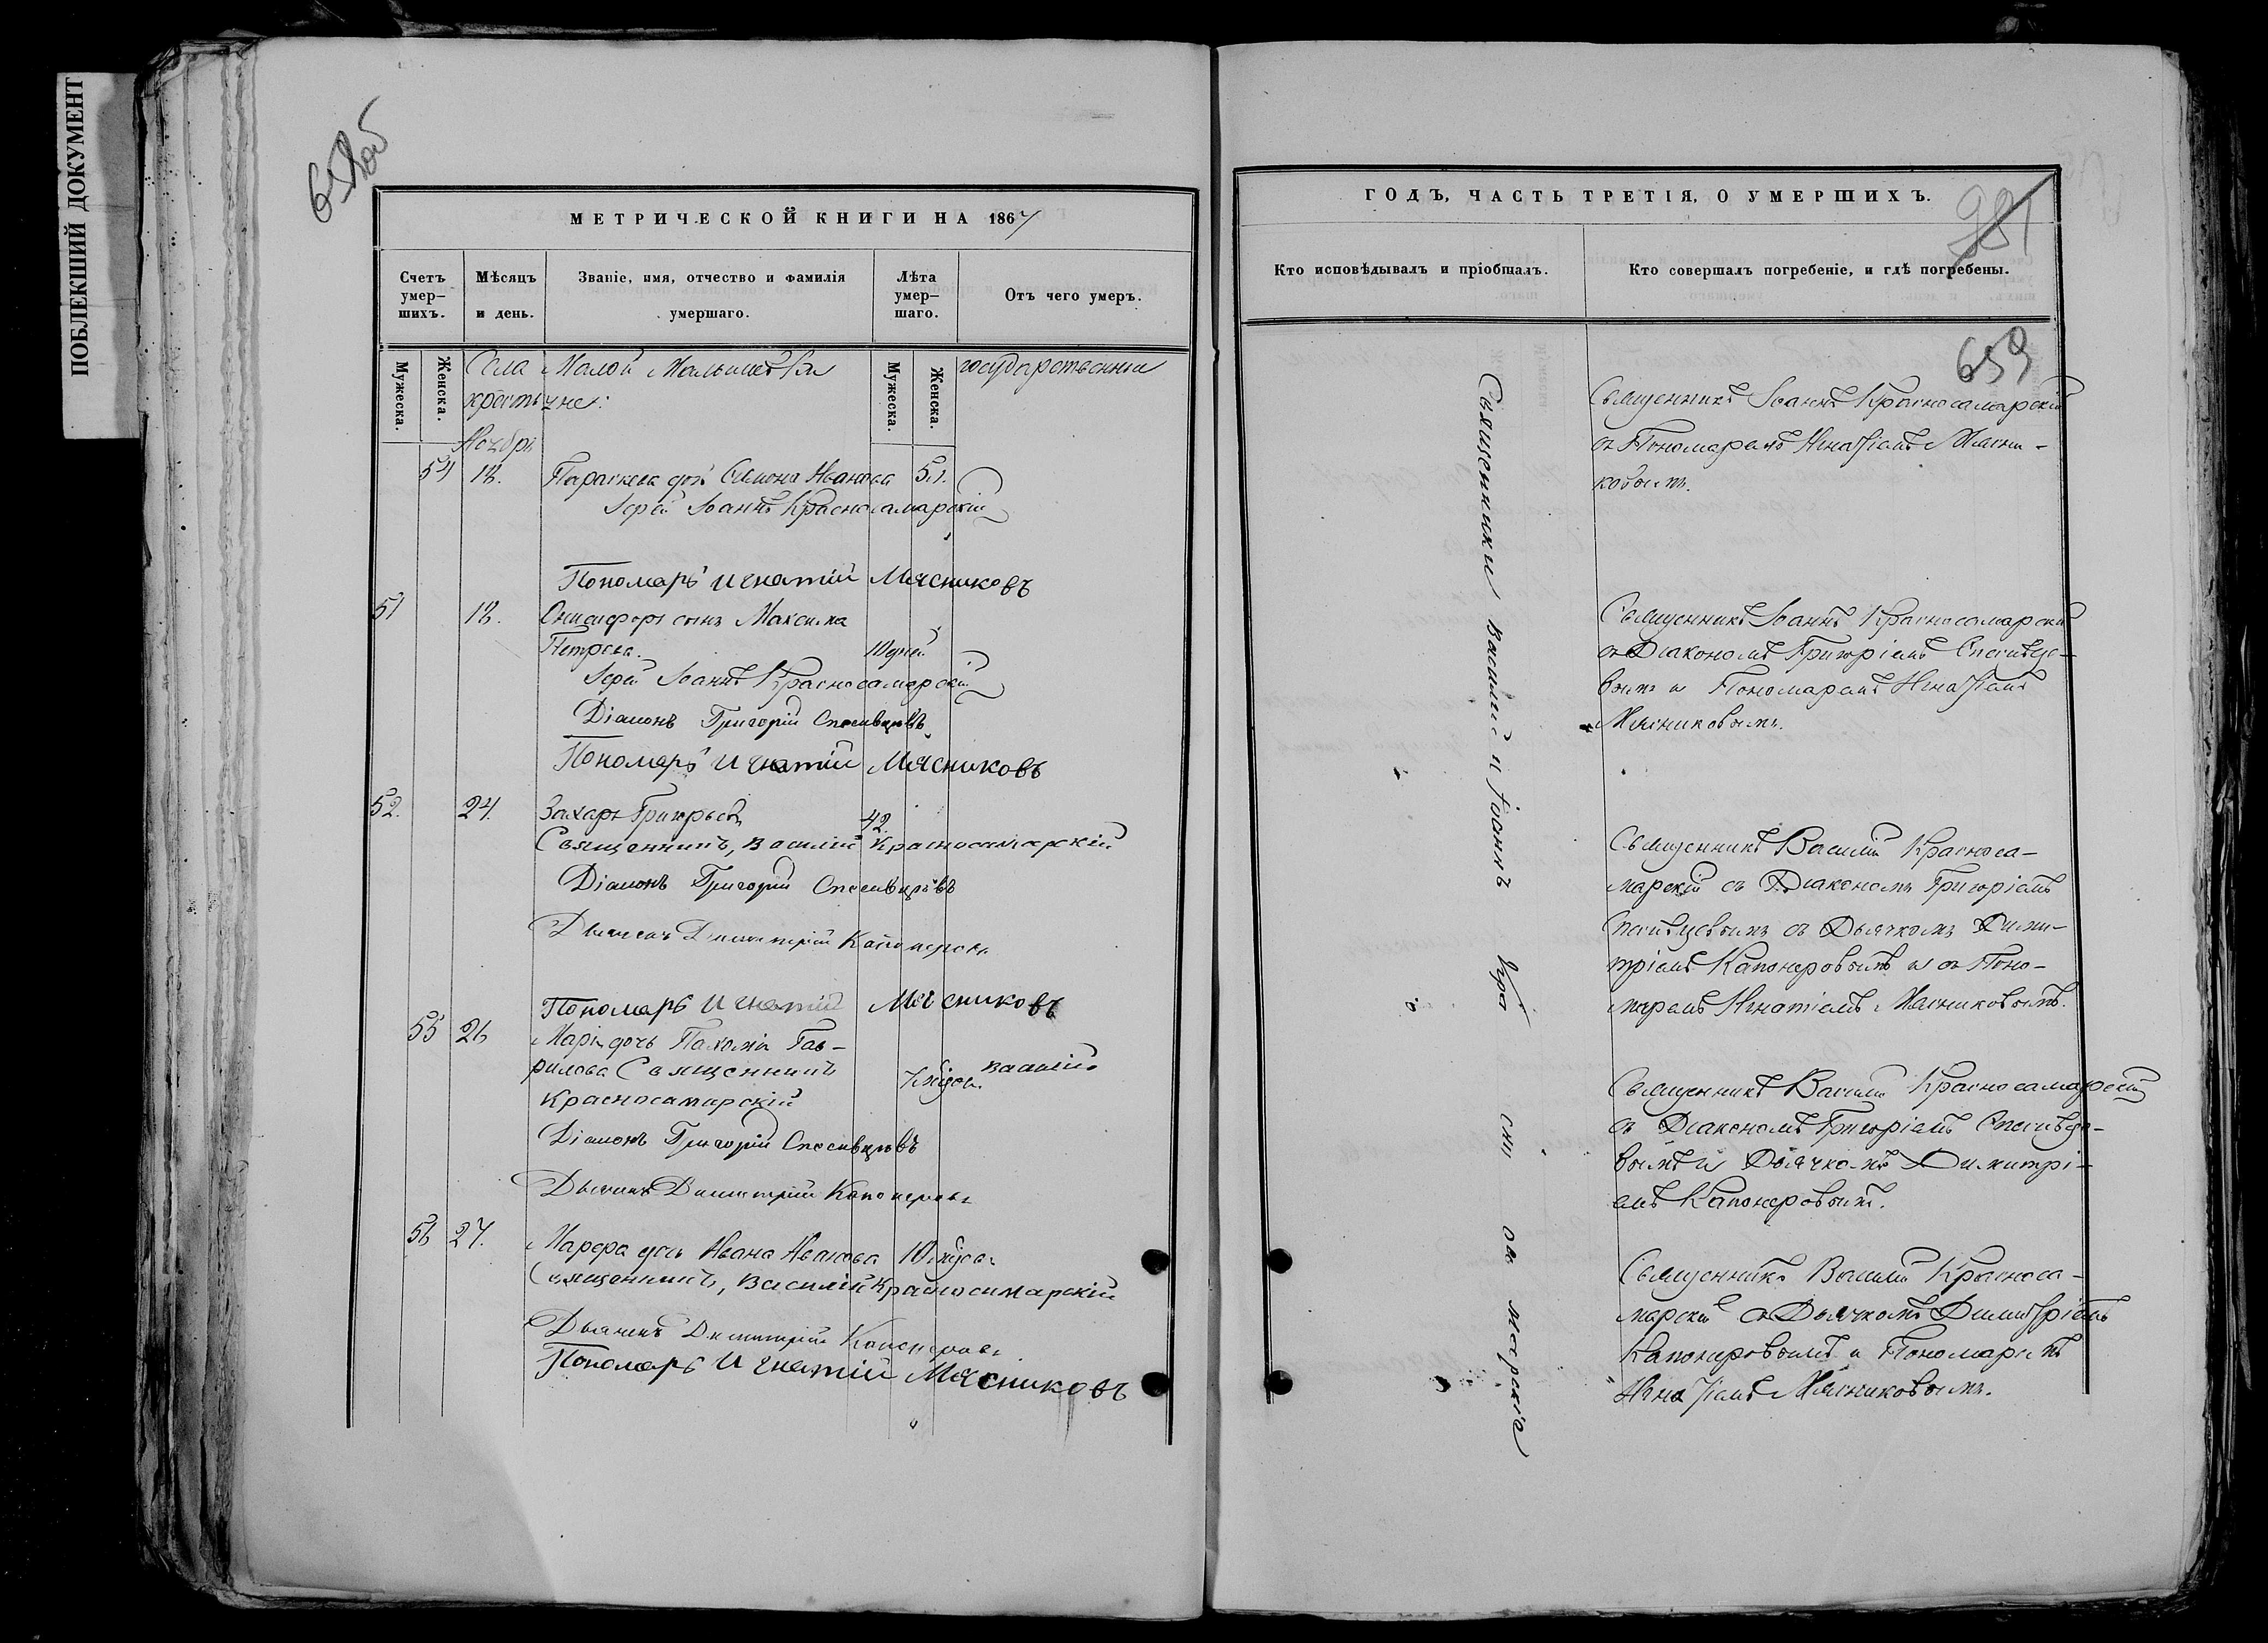 ПОБЛЕКШИЙ ДОКУМЕНТ
658об
МЕТРИЧЕСКОЙ КНИГИ НА 1867
Счетъ умер-шихъ.
Мѣсяцъ и день.
Званіе, имя, отчество и фамилія умершаго.
Лѣта умер-шаго.
Отъ чего умеръ.
Мужеска.
Женска.
Мужеска.
Женска.
Села Малой Малышевки государственные
крестьяне:
Ноября
54 18. Параскева дочь Симона Иванова 51.
Іерей Іоаннъ Красносамарскій
Пономарь Игнатій Мясниковъ
51 18. Онисифоръ сынъ Максима
Петрова. 10 дней
Іерей Іоаннъ Красносамарскій
Діаконъ Григорій Спесивцовъ
Пономарь Игнатій Мясниковъ
52. 24. Захаръ Григорьевъ 42.
Священникъ, Василій Красносамарскій
Діаконъ Григорій Спесивцовъ
Дьячекъ Димитрій Капонеровъ
Пономарь Игнатій Мясниковъ
55 26 Марія дочь Пахомія Гав-
рилова Священникъ Василій
Красносамарскій
Діаконъ Григорій Спесивцовъ
Дьячекъ Димитрій Капонеровъ
56 27. Марфа дочь Ивана Иванова 10
Священникъ, Василій Красносамарскій
Дьячекъ Димитрій Капонеровъ
Пономарь Игнатій Мясниковъ
ГОДЪ, ЧАСТЬ ТРЕТІЯ, О УМЕРШИХЪ.
981
Кто исповѣдывалъ и пріобщалъ.
Кто совершалъ погребеніе, и гдѣ погребены.
659
Священники Василій и Іоаннъ Кра сно са марскіе
Священникъ Іоаннъ Красносамарскій
съ Пономаремъ Игнатіемъ Мясни-
ковымъ.
Священникъ Іоаннъ Красносамарскій
съ Діакономъ Григоріемъ Спесивцо-
вымъ и Пономаремъ Игнатіемъ
Мясниковымъ.
Священникъ Василій Красноса-
марскій съ Діакономъ Григоріемъ
Спесивцовымъ съ Дьячкомъ Дими-
тріемъ Капонеровымъ и съ Поно-
маремъ Игнатіемъ Мясниковымъ.
Священникъ Василій Красносамарскій
съ Діакономъ Григоріемъ Спесивцо-
вымъ и Дьячкомъ Димитрі-
емъ Капонеровымъ.
Священникъ Василій Красноса-
марскій съ Дьячкомъ Димитріемъ
Капонеровымъ и Пономаремъ
Игнатіемъ Мясниковымъ.